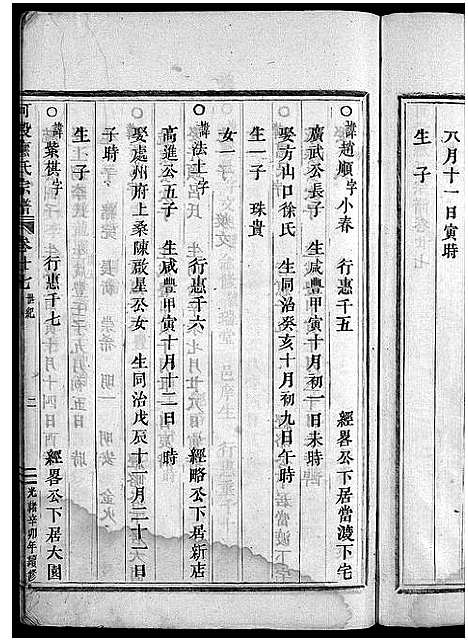 八月十一日寅時
生 子
諱趙順 字小春 行惠千五 經畧公下居當渡下宅
廣武公長子 生咸豐甲寅十月初一日未時
娶方山口徐氏 生同治癸亥十月初九日午時
生一子 珠貴
女一
諱法土 字 行惠千六 經略公下居新店
高進公五子 生咸豐甲寅十月十二日 時
娶處州府上桑陳啟星公女 生同治戊辰十一月二十一日
子時
生 子
諱紫棋 字 行惠千七 經畧公下居大園
氏宗譜 卷廿七 世紀 二 光緒辛卯年續修